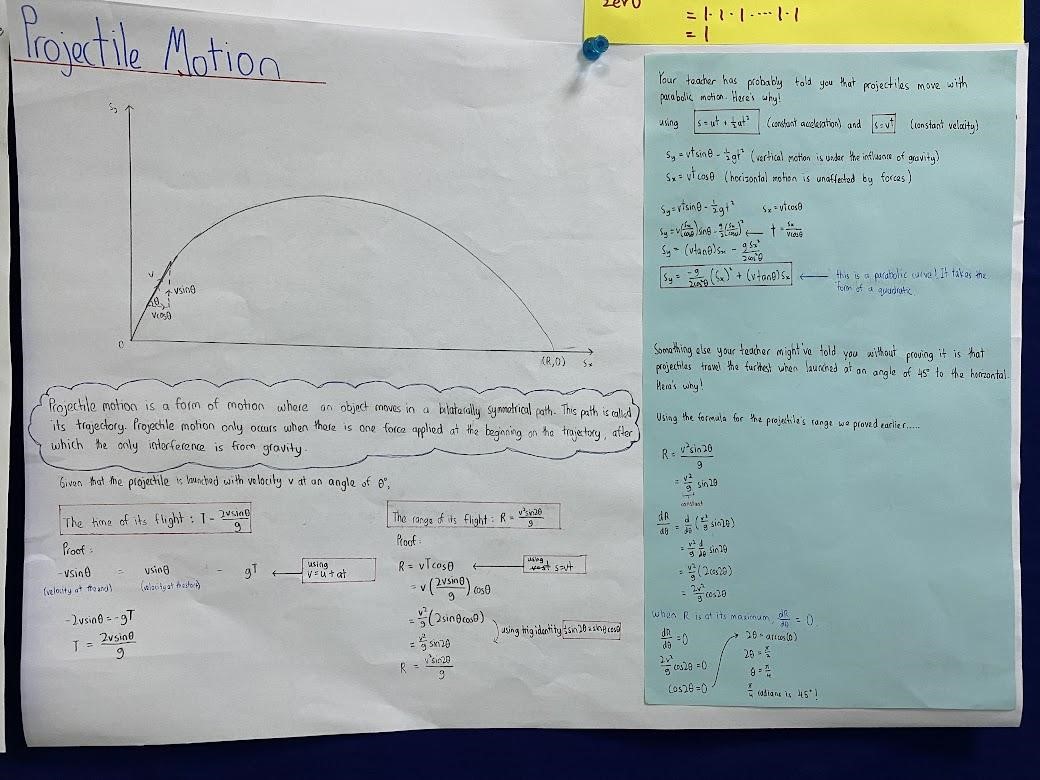 zero
= 1·1·1·····1·1
= 1
Projectile Motion
Sy
v
θ
vsinθ
vcosθ
0
(R,0)
Sx
Projectile motion is a form of motion where an object moves in a bilaterally symmetrical path. This path is called
its trajectory. Projectile motion only occurs when there is one force applied at the beginning on the trajectory, after
which the only interference is from gravity.
Given that the projectile is launched with velocity v at an angle of θ°,
The time of its flight : T = 2vsinθ/g
Proof:
-vsinθ = vsinθ - gT
using
v=u+at
(velocity at the end) (velocity at the start)
-2vsinθ = -gT
T = 2vsinθ/g
The range of its flight : R = v²sin2θ/g
Proof:
R = vTcosθ
using
s=vt
= v(2vsinθ/g)cosθ
= v²/g (2sinθcosθ)
using trig identity ½sin2θ=sinθcosθ
= v²/g sin2θ
R = v²sin2θ/g
Your teacher has probably told you that projectiles move with
parabolic motion. Here's why!
using s=ut+½at² (constant acceleration) and s=vt (constant velocity)
Sy = vtsinθ - ½gt² (vertical motion is under the influence of gravity)
Sx = vtcosθ (horizontal motion is unaffected by forces)
Sy = vtsinθ - ½gt² Sx = vtcosθ
Sy = v(Sx/cosθ)sinθ - g/2(Sx/cosθ)² ← t = Sx/vcosθ
Sy = (vtanθ)Sx - gSx²/2cos²θ
Sy = -g/2cos²θ (Sx)² + (vtanθ)Sx
this is a parabolic curve! It takes the
form of a quadratic.
Something else your teacher might've told you without proving it is that
projectiles travel the furthest when launched at an angle of 45° to the horizontal.
Here's why!
Using the formula for the projectile's range we proved earlier.....
R = v²sin2θ/g
= v²/g sin2θ
constant
dR/dθ = d/dθ (v²/g sin2θ)
= v²/g d/dθ sin2θ
= v²/g (2cos2θ)
= 2v²/g cos2θ
when R is at its maximum, dR/dθ = 0.
dR/dθ = 0
2v²/g cos2θ = 0
cos2θ = 0
2θ = arccos(0)
2θ = π/2
θ = π/4
π/4 radians is 45°!